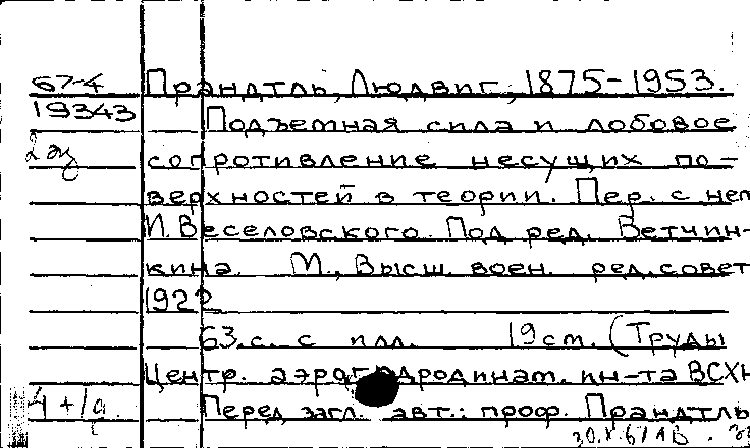 67-4 Прандтль, Людвиг, 1875-1953.
19343 Подъемная сила и лобовое
2 эк сопротивление несущих по-
верхностей в теории. Пер. с нем
И. Веселовского. Под ред. Ветчин-
кина. М., Высш. воен. ред. совет
1922
63.с. с илл. 19 см. (Труды
Центр. аэрогидродинам. ин-та ВСХН
4+1д. Перед загл. авт.: проф. Прандтль
30.X.67